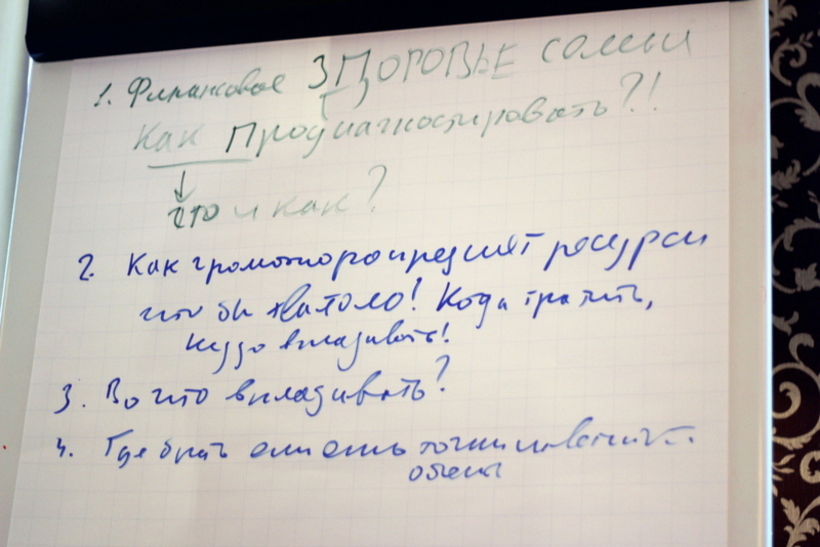 1. Финансовое ЗДОРОВЬЕ семьи
Как Продиагностировать?!
что и как?
2. Как грамотно распределить ресурсы
что бы хватало! Когда тратить,
вкладывать!
3. Во что вкладывать?
4. Где брать если есть точки